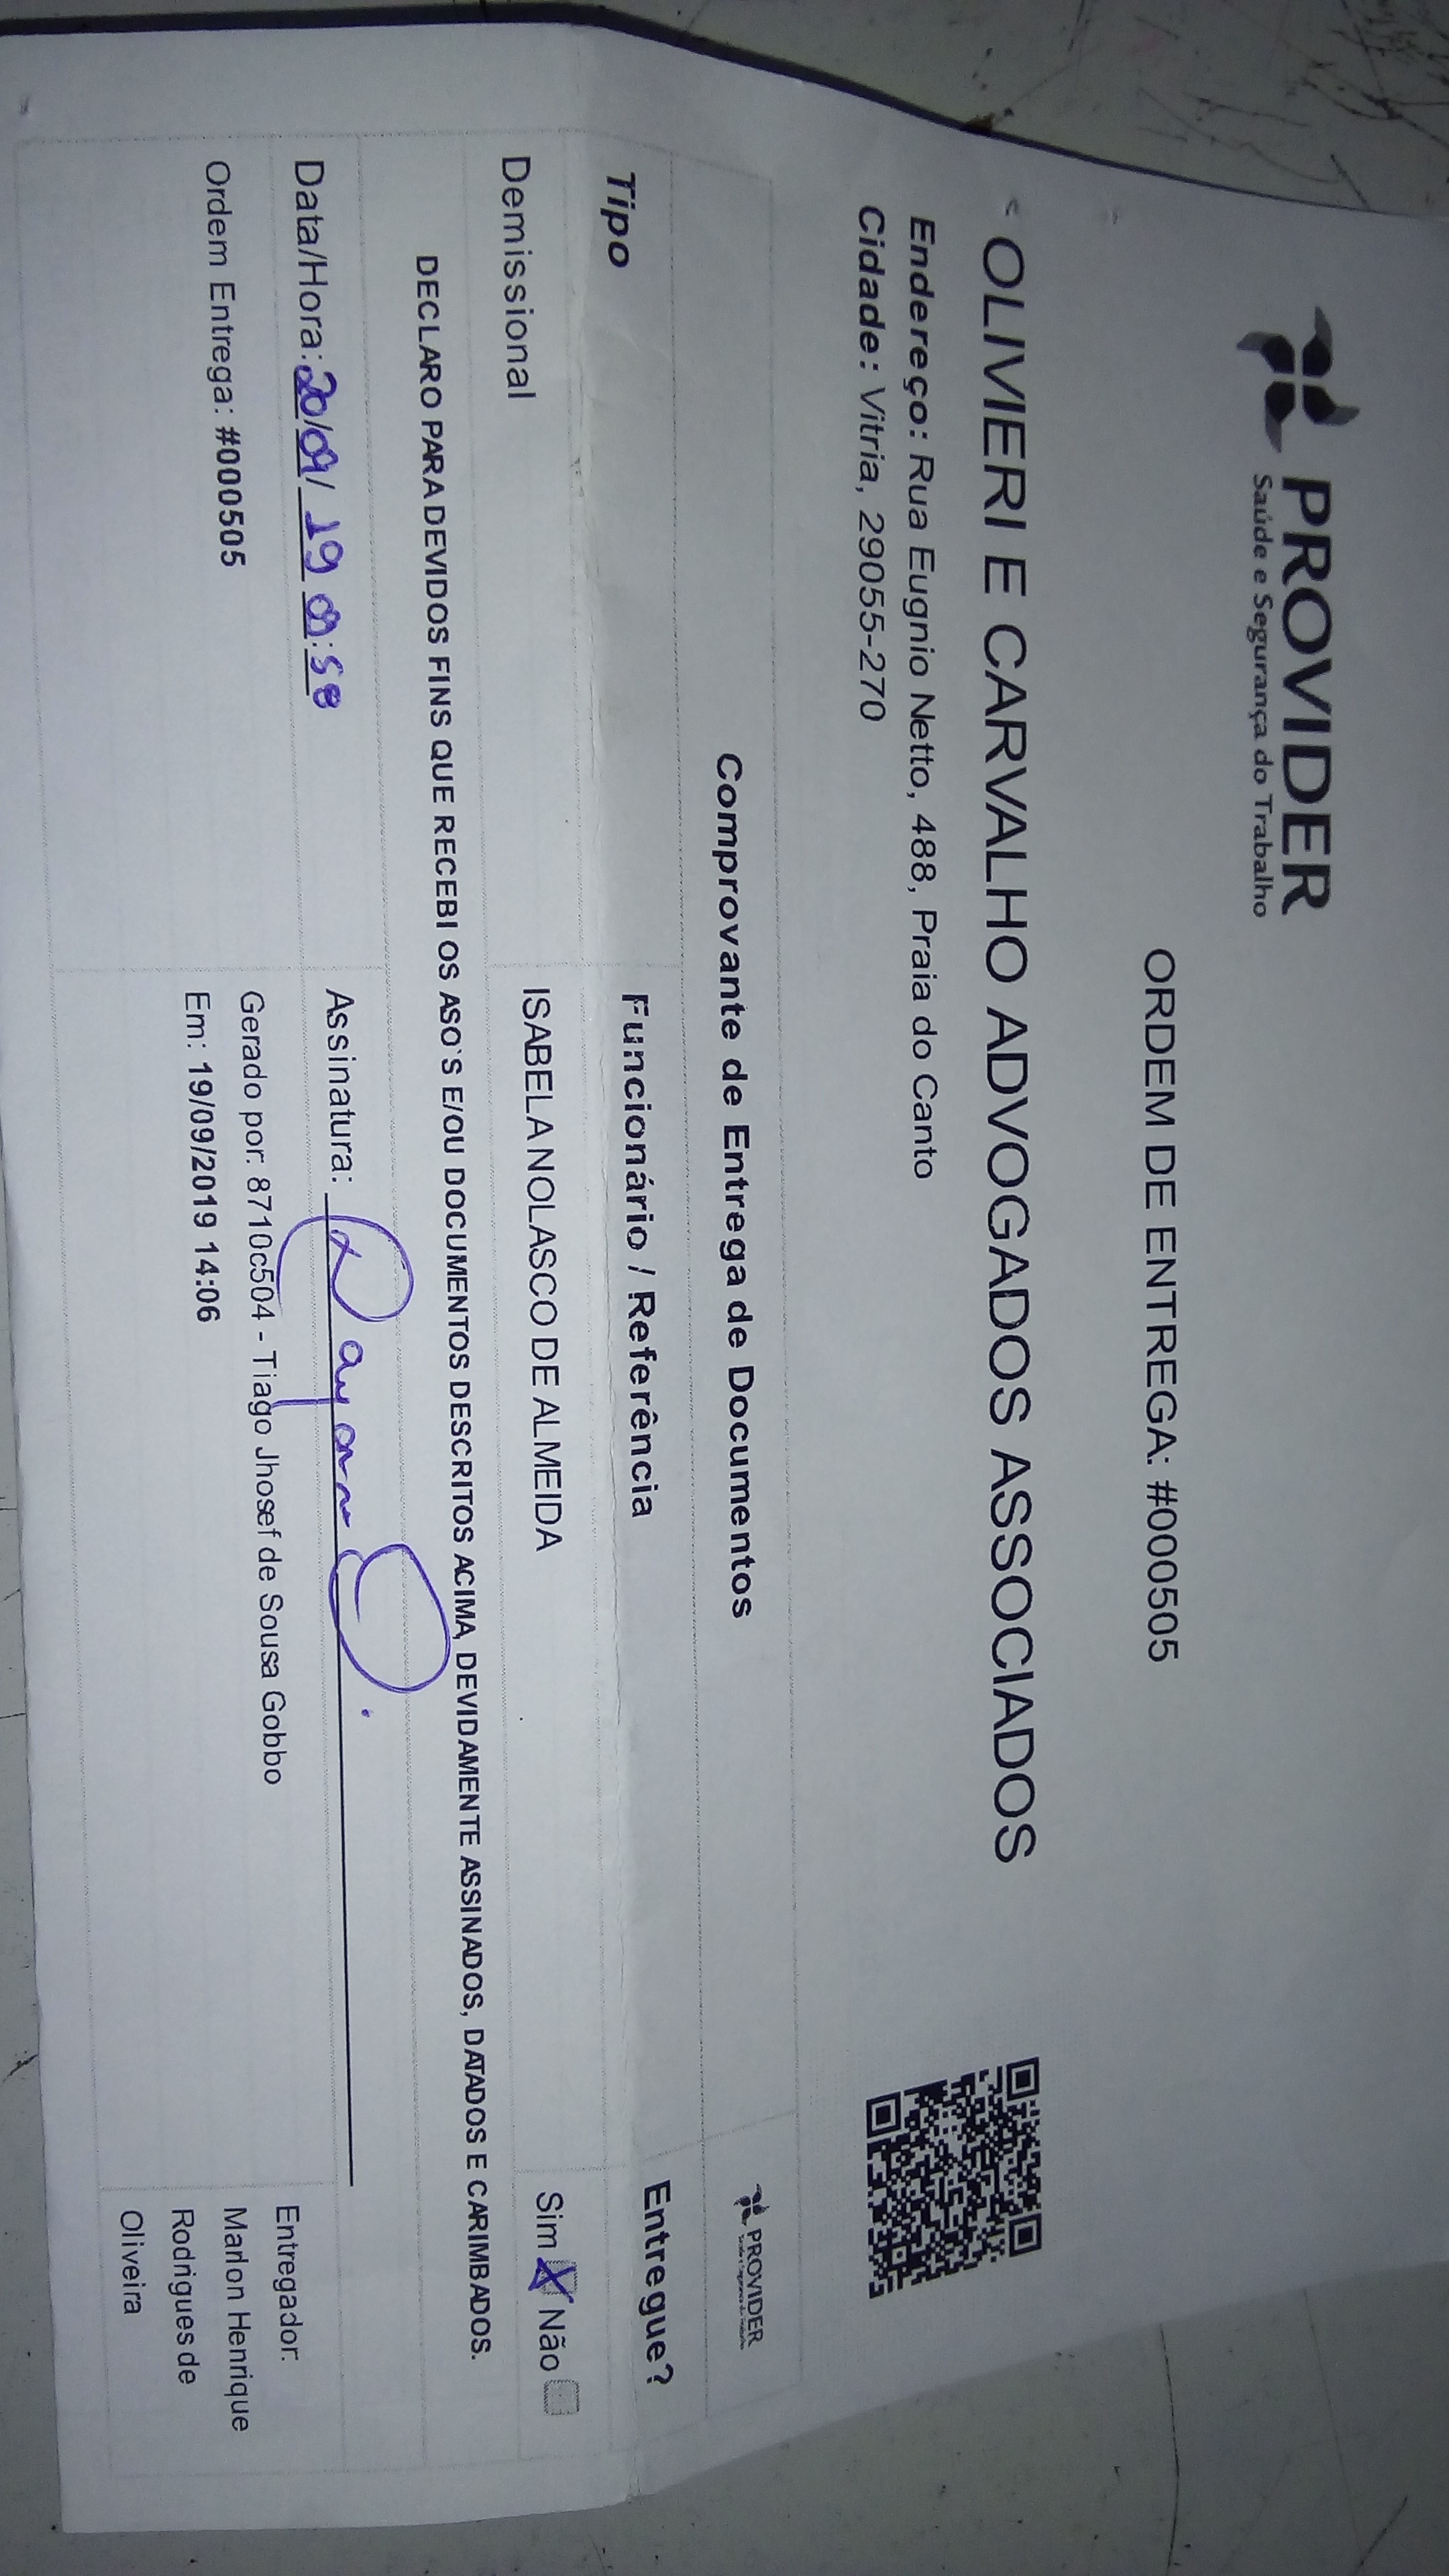 PROVIDER
Saúde e Segurança do Trabalho
ORDEM DE ENTREGA: #000505
OLIVIERI E CARVALHO ADVOGADOS ASSOCIADOS
Endereço: Rua Eugnio Netto, 488, Praia do Canto
Cidade: Vitria, 29055-270
Comprovante de Entrega de Documentos
PROVIDER
Tipo Funcionário / Referência Entregue?
Demissional ISABELA NOLASCO DE ALMEIDA Sim X Não
DECLARO PARA DEVIDOS FINS QUE RECEBI OS ASO`S E/OU DOCUMENTOS DESCRITOS ACIMA, DEVIDAMENTE ASSINADOS, DATADOS E CARIMBADOS.
Data/Hora: 20/09/ 19 Assinatura:
Ordem Entrega: #000505
Gerado por: 8710c504 - Tiago Jhosef de Sousa Gobbo
Em: 19/09/2019 14:06
Entregador:
Marlon Henrique
Rodrigues de
Oliveira